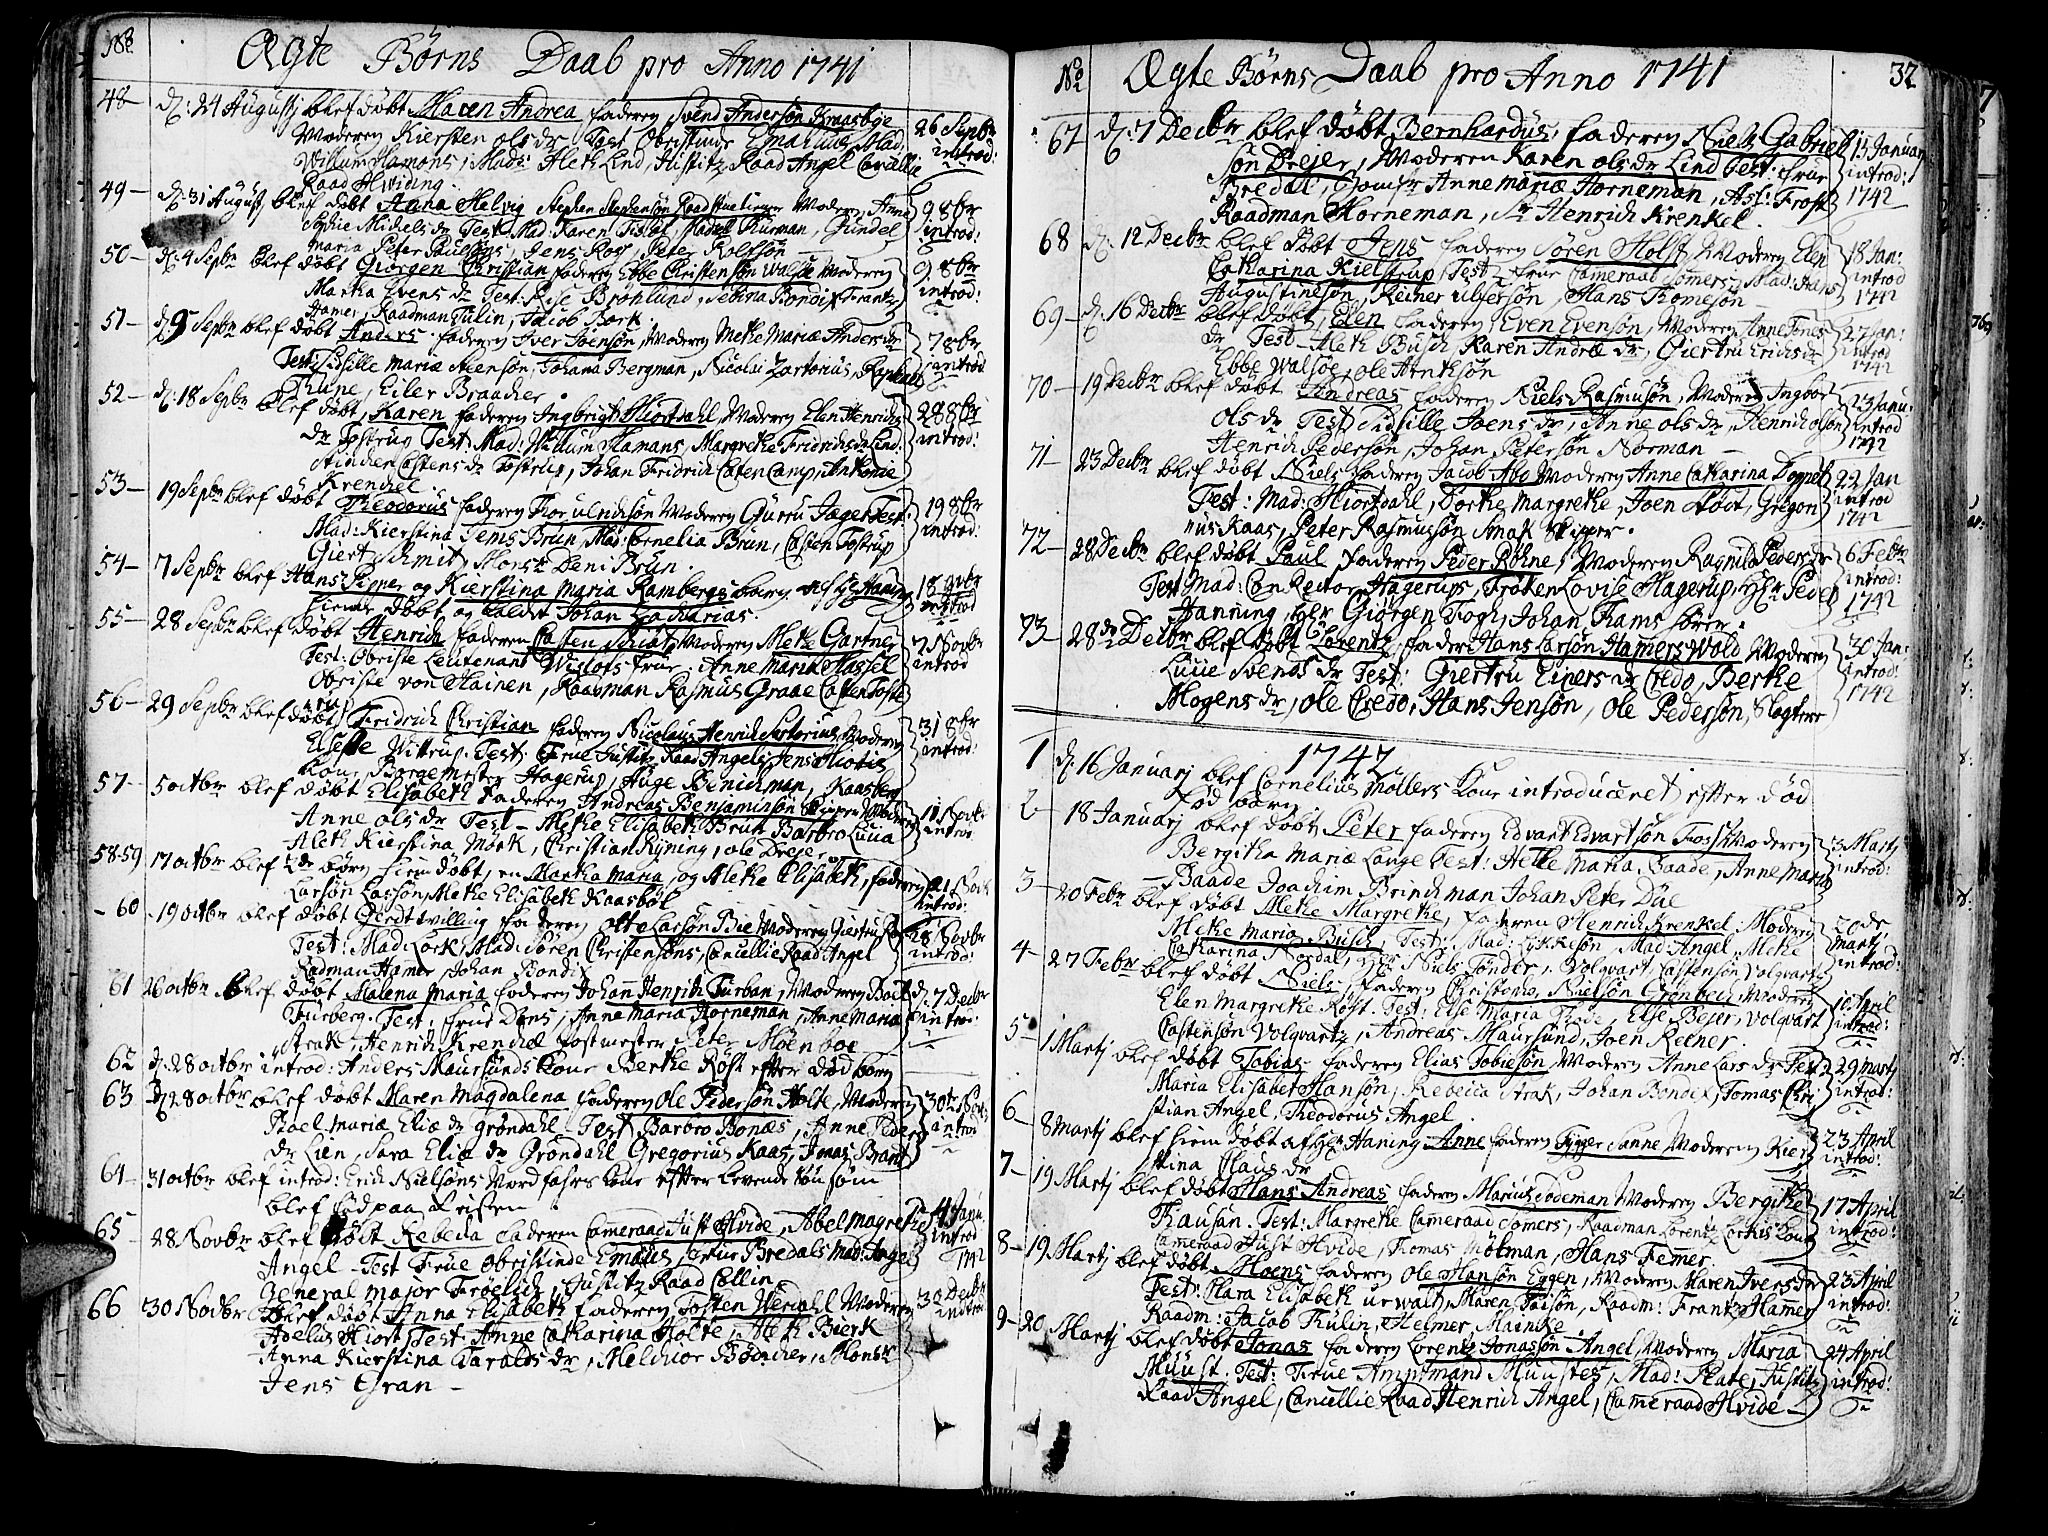 No
Ægte Børns Daab pro Anno 1741
48 – d: 24 Augustj blef døbt Maren Andrea faderen Svend Andersøn Kraasbøe
Moderen Kiersten ols dr Test Obristinde Emahus, Mad:
Willum Hamons, Mad: Aleth Lind, Histitz Raad Angel Cancellie
Raad Hwiding.
26 Sepbr introd:
49 – d: 31 Augustj blef døbt Anna Helvig Stephen Stephensøn Moderen Anne
Sophie Michels dr Test Mad: Karen Tislef, Madel Thurman, Gundel
Maria Peter Paulsens, Jens Roy, Peter Rolfsøn
9 8br introd:
50 – d: 4 Sepbr blef døbt Giørgen Christian faderen Ebbe Christensøn Walsøe Moderen
Martha Evens dr Test: Rise Brohlund, Sebina Bondix Frantz
Hamer, Raadman Tulin, Jacob Bork.
9 8br introd:
51 – d: 9 Sepbr blef døbt Anders faderen Iver Joensøn, Moderen Mette Mariæ Anders dr
Test: Sidsille Mariæ Steensøn, Johana Bergman, Nicolai Zartorius, Raphael
Thune, Eiler Braacher.
7 8br introd
52 – d: 18 Sepbr blef døbt, Karen faderen Ingbrigt Hiortdahl, Moderen Elen Henrichs
dr Tostrup Test: Mad: Willum Hamans, Margrethe Fridrichs dr Lind:
Castens dr Tostrup, Johan Fridrich Caten Camp, Anthonie
Krenchel
28 8br introd:
53 – 19 Sepbr blef døbt Theodorus faderen Tho ulrichsøn Moderen Gurru Jæger Test:
Mad: Kierstina Jems Brun, Mad: Cornelia Brun, Casten Tostrup
Giert Schmit, Monsr Deni Brun.
19 8br introd:
54 – 7 Sepbr blef Hans Pipper og Kierstina Maria Rambergs barn af Hr Haning
hiem døbt og kaldet Johan Zacharias.
18 9br introd
55 – 28 Sepbr blef døbt Henrich faderen Casten Schiøt, Moderen Mette Gartner
Test: Obriste Leutenant Wiglofs frue, Anne Maria Hassel
Obriste von Hainen, Raadman Rasmus Graae Casten Toste
rup
7 Novbr introd
56 – 29 Sepbr blef døbt Fridrich Christian faderen Nicolaus Henrich Sartorius, Moderen
Elsebe Wittrup. Test: Frue Justitz Raad Angels, Jens Hiortis
kone, Borgemester Hagerup, Auge Benichman, Kaasberg
31 8br introd:
57 – 5 octbr blef døbt Elisabeth faderen Andreas Benjaminsøn Skipper Moderen
Anne ols dr Test – Mette Elisabeth Brun Barbro Lucia
Aleth Kierstina Mørk, Christian Ryning, ole Dreje
11 Novbr introd
58-59 17 octbr blef 2de børn hiemdøbt, en Martha Maria og Mette Elisabeth, faderen
Larsøn Lassøn, Mette Elisabeth Kaasbøl
21 Novbr introd:
60 – 19 octbr blef døbt Gerdt willing faderen otte Larsøn Bie Moderen Giertru
Test: Mad: Lork, Mad: Søren Christensøns, Cancellie Raad Angel
Radman Hamer, Johan Bondix
28 Novbr introd:
61 26 octbr blef døbt Malena Maria faderen Johan Henrich Turban, Moderen Doct
Thurberg. Test: frue Dons, Anne Maria Horneman, Anne Maria
Strak, Henrich Krenchel Postmester Peter Møenboe
d: 7 Decbr introd:
62 d: 28 octbr introd: Anders Maursunds Kone Berthe Røst efter død barn
63 d: 28 octbr blef døbt Maren Magdalena faderen Ole Pedersøn Holte, Moderen
Mariæ Eliæ dr grøndahl – Test Barbro Bonæs, Anne Peder
dr Lien, Sara Eliæ dr Grøndahl Gregorius Kaas, Jonas Brant
30 Novbr introd
64 31 octbr blef introd: Erich Nielsøns Nordfahrs Kone efter Levende søn som
blef fød paa Reisen.
65 – 28 Novbr blef døbt Rebecka faderen Cameraad Just Hvide, Abel magrethe
Angel – Test Frue Obristinde Emahus, frue Bredals Mad: Angel
General Major Frøelich, Justitz Raad Collin.
4 Janu: introd 1742
66 30 Novbr blef døbt Anna Elisabeth faderen Tosten Werdahl Moderen
Adelus Hiort Test: Anne Catharina Holte, Aleth Bierk
Anna Kierstina Taralds dr, Melchior Bødcher, Monsr
Jens Gran –
30 Decbr introd:
No
Ægte Børns Daab pro Anno 1741
32
67 d: 7 Decbr blef døbt Bernhardus, faderen Niels Gabriel
søn Drejer, Moderen Karen ols dr Lind Test: frue
Bredal, Jomfr Anne mariæ Horneman, Ass: Frost
Raadman Horneman, Sr Henrich Krenkel.
15 Januarj introd: 1742
68 d: 12 Decbr blef døbt Jens faderen Søren Holst, Moderen Elen
Catharina Kielstrup, Test – frue Cameraad Somers, Mad: Hans
Augustinsøn, Reiner ulfersøn, Hans Thomesøn –
18 Jan: introd 1742
69 – d: 16 Decbr blef døbt, Elen faderen, Even Evensøn, Moderen Anne Jones
dr Test – Aleth Busch, Karen Andræ dr, Giertru Erichs dr
Ebbe Walsøe, ole Arntsøn
27 Jan: introd 1742
70 – 19 Decbr blef døbt Andreas faderen Niels Rasmusøn, Moderen Ingbor
ols dr Test Sidsille Joens dr, Anne ols dr, Henrich olsøn
Henrich Pedersøn, Johan Petersøn Norman –
23 Janu: introd 1742
71 – 23 Decbr blef døbt Niels faderen Jacob Abo Moderen Anne Catharina Doppel
Test: Mad: Hiortdahl, Dorthe Margrethe, Joen Høvt, Gregori
nus Kaas, Peter Rasmusøn Smak Skipper.
22 Jan introd 1742
72 – 28 Decbr blef døbt Paul faderen Peder Røhne, Moderen Ragnild Peders dr
Test Mad: Con Rector Hagerups, Frøken Lovise Hagerup, Hr Peder
Hanning, Hr Giørgen Fogh, Johan Frams sønn.
6 Febr introd: 1742
73 – 28de Decbr blef døbt Lorentz, fader Hans Larsøn Hamers Wold Moderen
Lucie Svends dr Test: Giertru Eipers dr Credo, Berthe
Mogens dr, ole Credo, Hans Jensøn, Ole Pedersøn, Slagtere
30 Jan: introd: 1742
1742
1 d: 16 Januarj blef Cornelius Møllers Kone introduceret efter død
fød barn
2 – 18 Januarj blef døbt Peter faderen Edvart Edvartsøn Foss Moderen
Bergitha Mariæ Lange Test: Helle Maria Baade, Anne Maria
Baade Joachim Brinchman Johan Peter Düe
3 Martj introd:
3 – 20 Febr blef døbt Mette Margrethe, faderen Henrich Krenkel, Moderen
Mette Maria Busch, Test: Mad: Lykkesøn, Mad: Angel, Mette
Catharina Nordal, Hr Niels Tønder, Volqvart Castensøn Volqvartz
20de Martj introd:
4 – 27 Febr blef døbt Niels, faderen Christopher Nielsøn Grønbech, Moderen
Elen Margrethe Røst. Test: Else Maria Flade, Else Bejer, Volqvart
Castensøn Volqvartz, Andreas Maursund, Joen Reiner.
10 April introd:
5 – 1 Martj blef døbt Tobias faderen Elias Tobiesøn, Moderen Anne Lars dr Test:
Maria Elisabet Hansøn, Rebecca Strak, Johan Bondix, Tomas Chri
stian Angel, Theodorus Angel.
29 Martj introd:
6 8 Martj blef hiem døbt af Hr Haning Anne faderen Tygger Sanne Moderen Kier
stina Claus dr
23 April introd:
7 – 19 Martj blef døbt Hans Andreas faderen Marius Sodeman Moderen Bergithe
Thausan. Test: Margrethe Cameraad Somers, Raadman Lorentz Lorkis Kone
Cameraad Just Hvide, Thomas Møhlman, Hans Femer.
17 April introd:
8 – 19. Martj blef døbt Moens faderen Ole Hansøn Eggen, Moderen Maren Ivers dr
Test: Clara Elisabeth urwalt, Maren Toisøn, Raadm: Frantz Hamer
Raadm: Jacob Thulin, Helmer Mainike –
23 April introd:
9 – 20 Martj blef døbt Jonas faderen Lorentz Jonassøn Angel, Moderen Maria
Muust. Test: Frue Amptmand Muustes, Mad: Plate, Justitz
Raad Angel, Cancellie Raad Henrich Angel, Cameraad Hvide –
24 April introd: